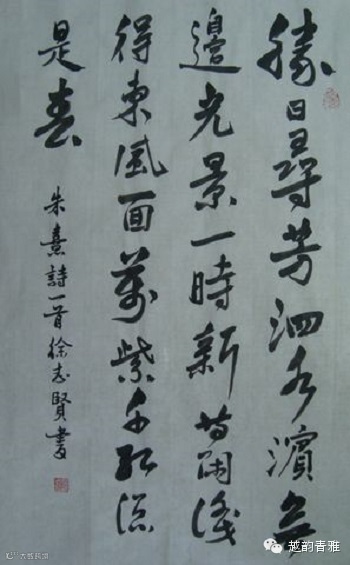 勝日尋芳泗水濱無
邊光景一時新等閑識
得東風面萬紫千紅總
是春
朱熹詩一首徐志賢書
越韵青雅